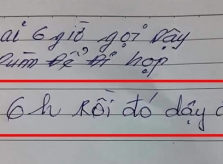 ai 6 giờ gọi dậy
để đi họp
6h rồi đó dậy